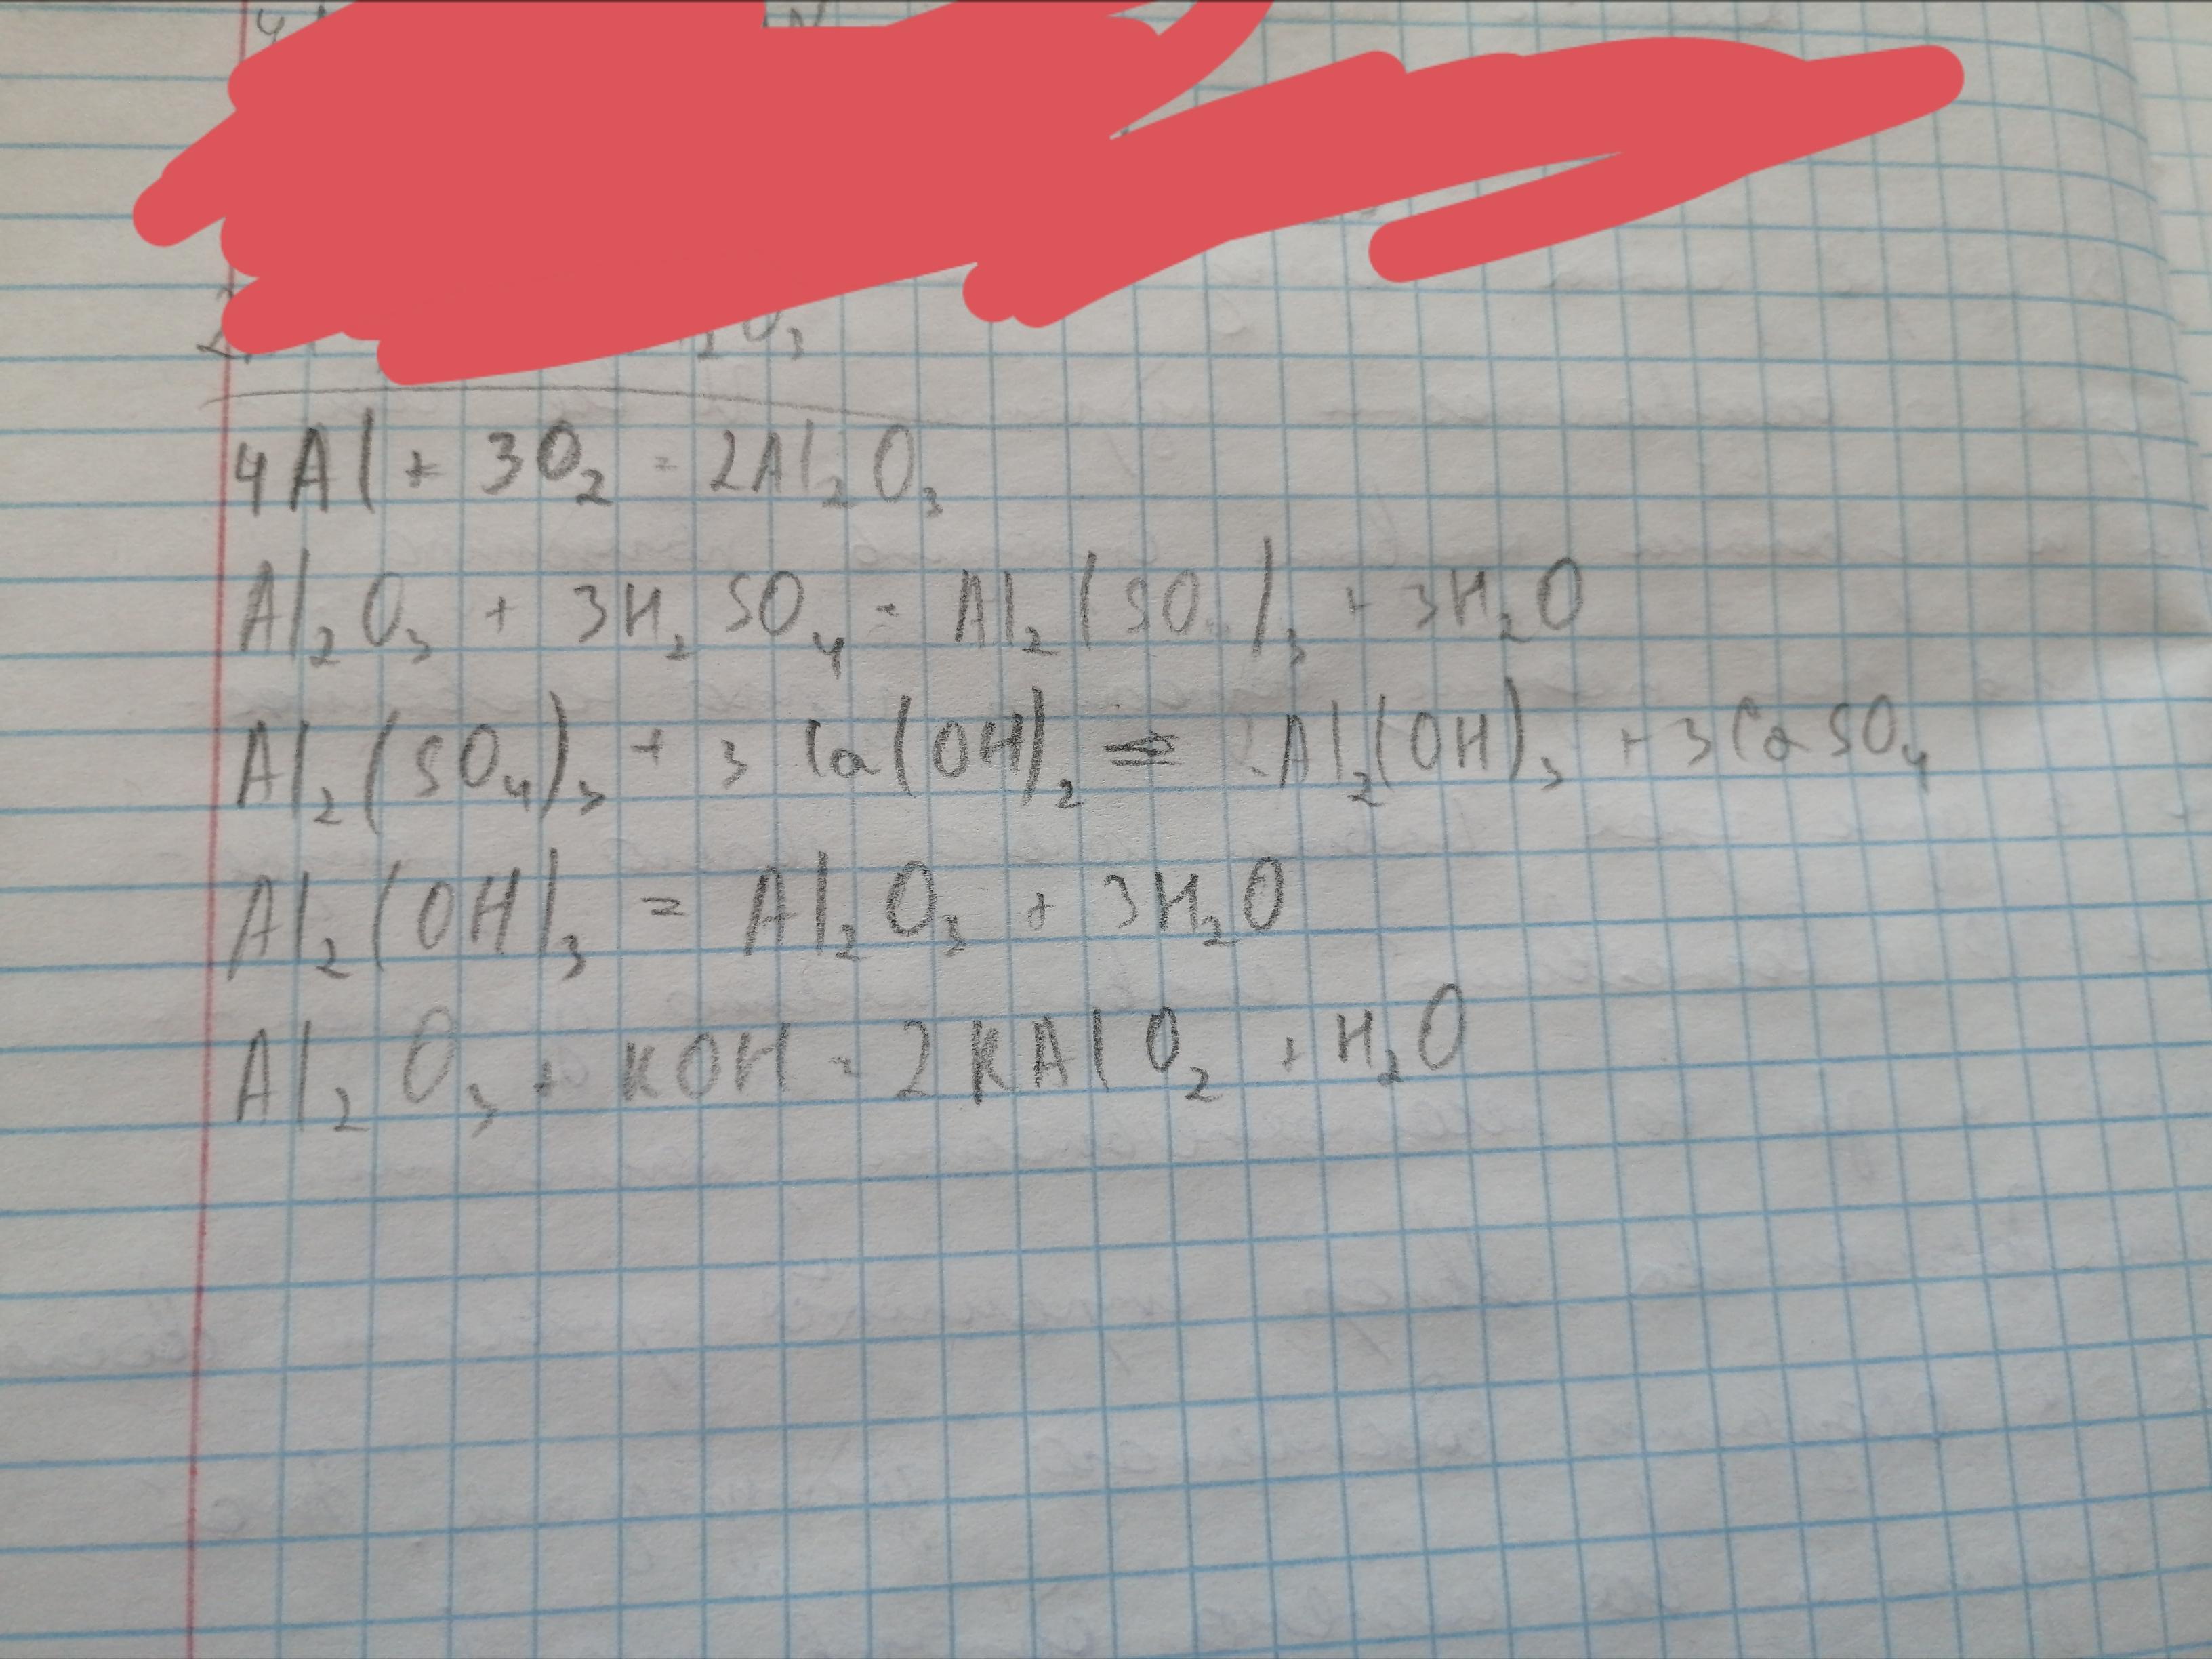 4Al + 3O₂ = 2Al₂O₃
Al₂O₃ + 3H₂SO₄ = Al₂(SO )₃ + 3H₂O
Al₂(SO₄)₃ + 3Ca(OH)₂ = Al₂(OH)₃ + 3CaSO₄
Al₂(OH)₃ = Al₂O₃ + 3H₂O
Al₂O₃ + KOH = 2KAlO₂ + H₂O